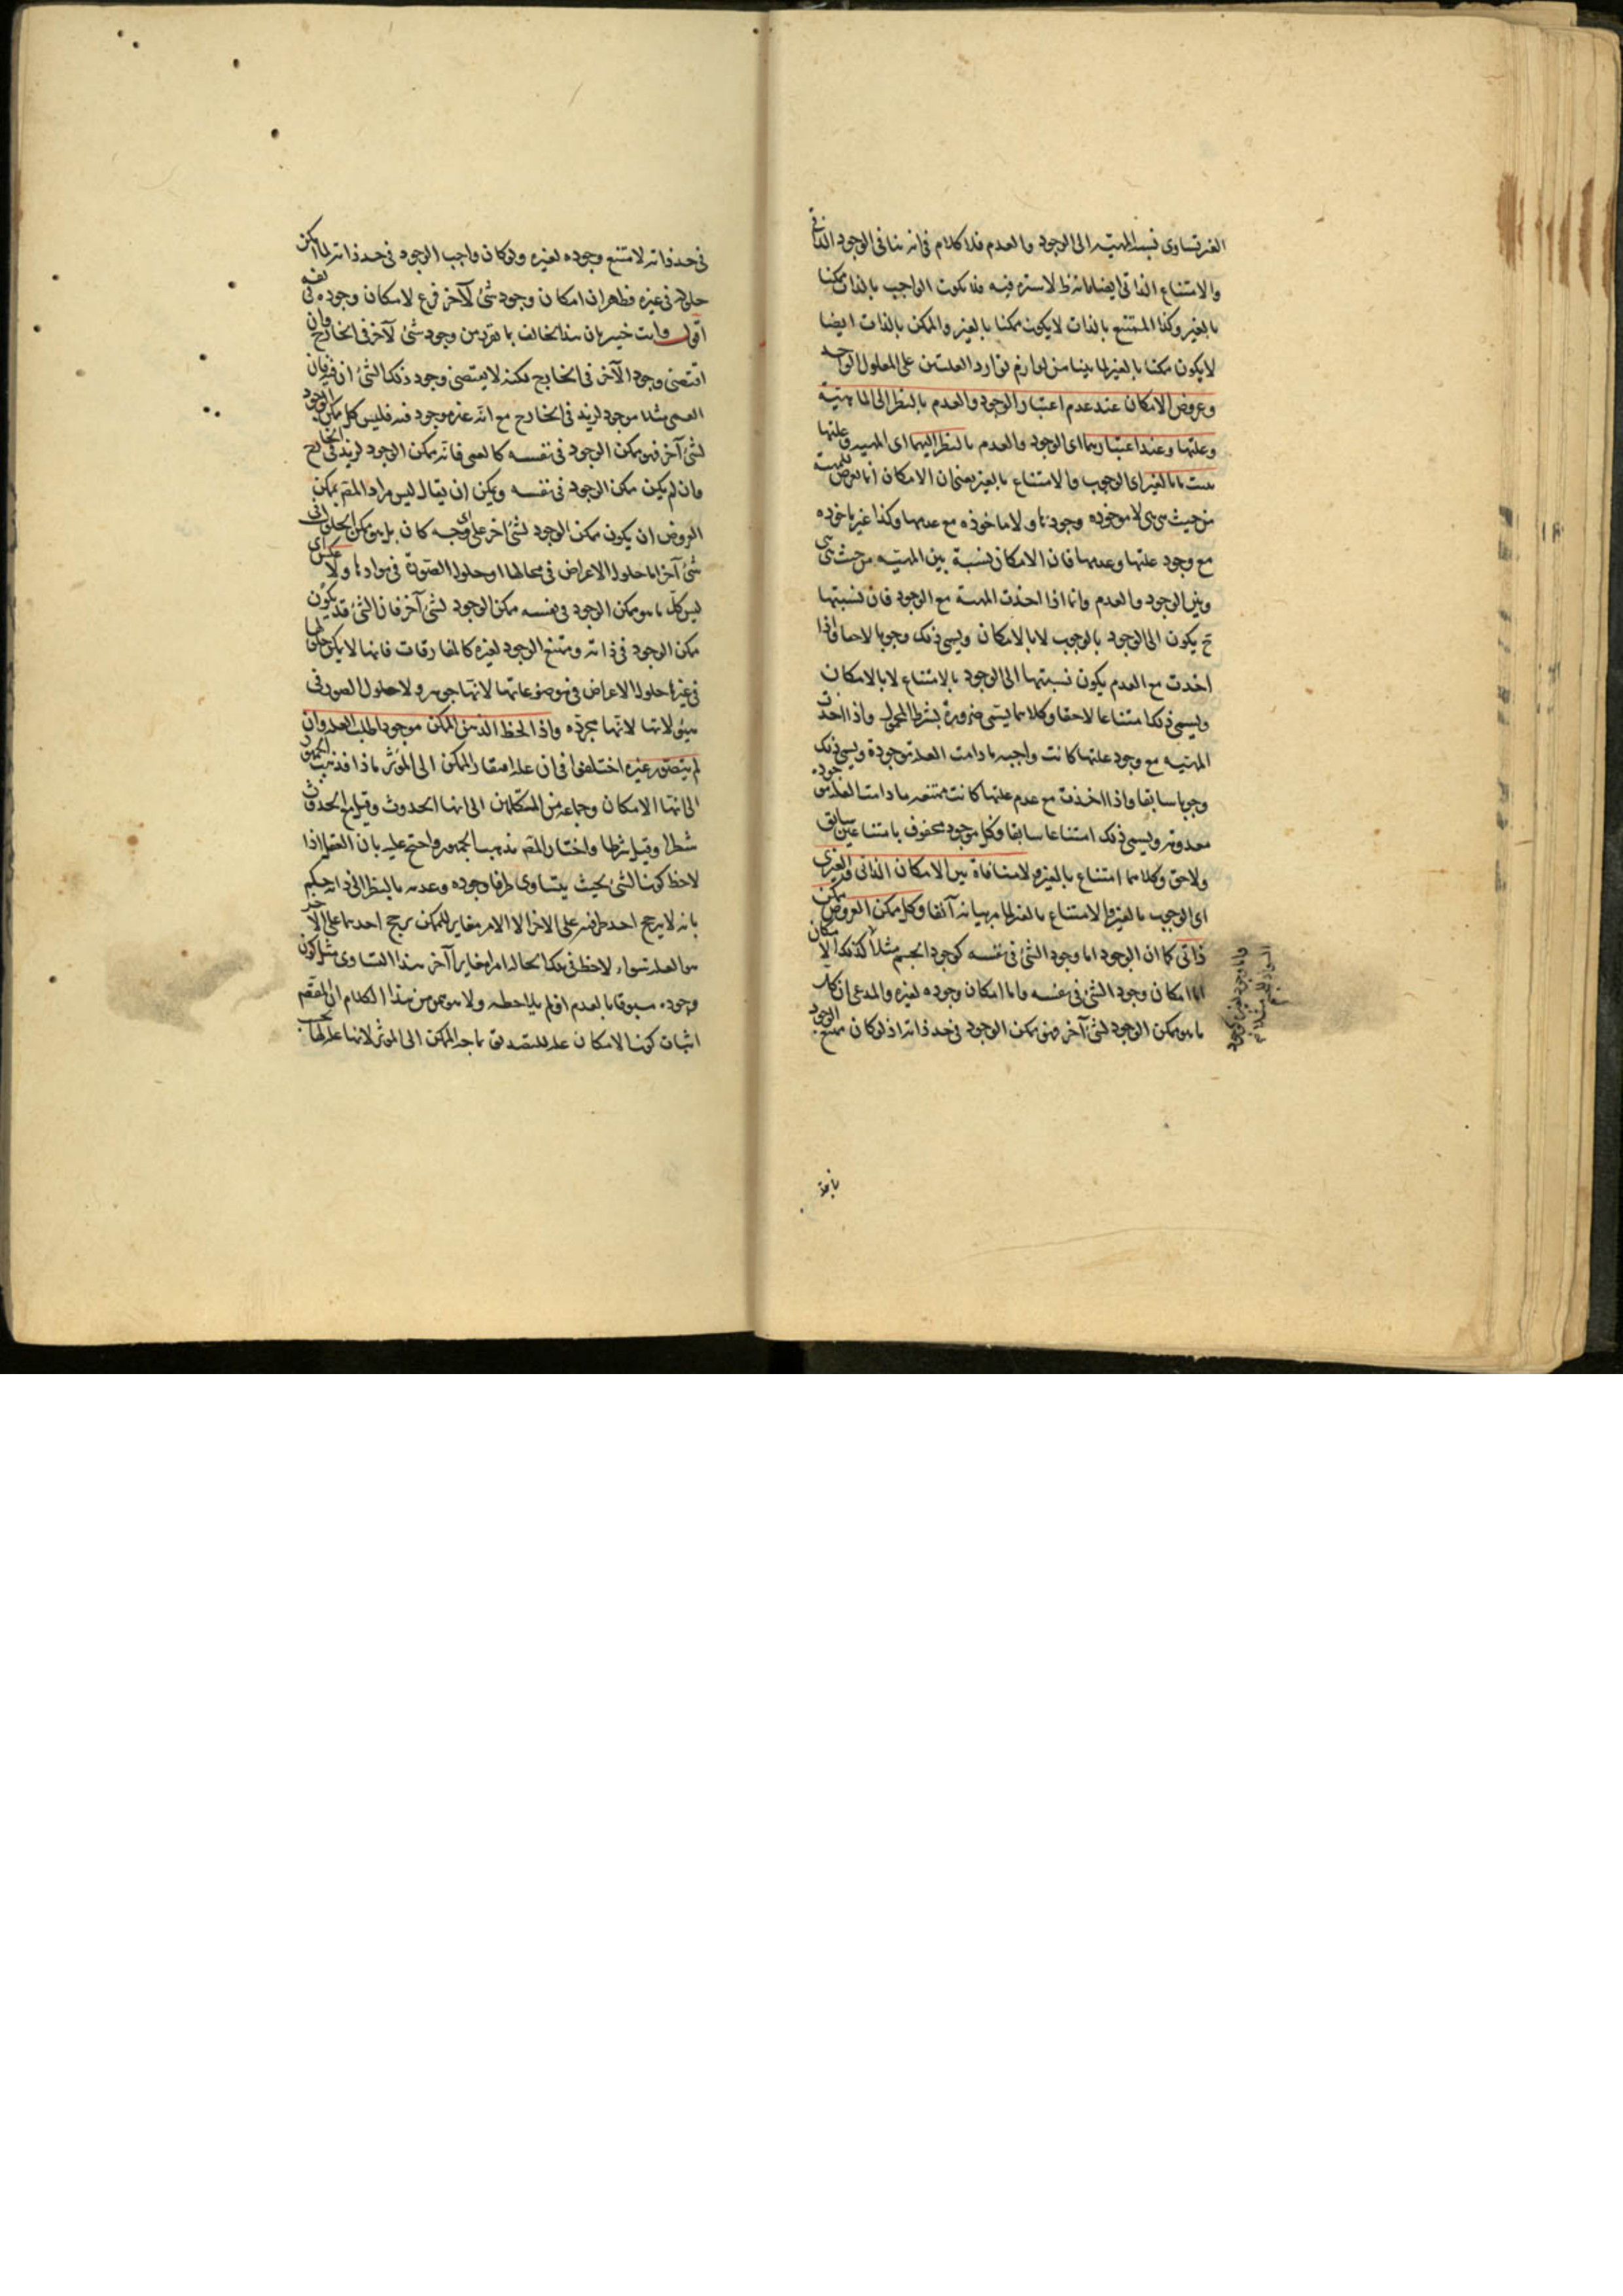 الغير تساوى نسبة المهيّة الى الوجود والعدم فلا كلام فى انه ينافى الوجود الذاتى
والامتناع الذاتى ايضا لا سترة فيه فلا يكون الواجب بالذات ممكنا
بالغير وكذا الممتنع بالذات لا يكون ممكنا بالغير والممكن بالذات ايضا
لا يكون ممكنا بالغير لما بينا من لزوم توارد العلتين على المعلول الواحد
وعروض الامكان عند عدم اعتبار الوجود والعدم بالنظر الى الماهية
وعلتها وعند اعتبارهما اى الوجود والعدم بالنظر اليهما اى المهية وعلتها
يثبت ما بالغير اى الوجوب والامتناع بالغير يعنى ان الامكان انما يعرض للمهية
من حيث هى هى لا ماخوذة مع وجودها ولا ماخوذه مع عدمها وكذا غير ماخوذه
مع وجود علتها وعدمها فان الامكان نسبة بين المهيّة من حيث هى
وبين الوجود والعدم واما اذا اخذت المهية مع الوجود فان نسبتها
ح يكون الى الوجود بالوجوب لا بالامكان ويسمى ذلك وجوبا لاحقا واذا
اخذت مع العدم يكون نسبتها الى الوجود بالامتناع لا بالامكان
ويسمى ذلك امتناعا لاحقا وكلاهما يسمى ضرورة بشرط المحمول واذا اخذت
المهية مع وجود علتها كانت واجبه ما دامت العلة موجودة ويسمى ذلك
وجوبا سابقا واذا اخذت مع عدم علتها كانت ممتنعه ما دامت العلة
معدومة ويسمى ذلك امتناعا سابقا وكل موجود محفوف بامتناعين سابق
ولاحق وكلاهما امتناع بالغير ولا منافاة بين الامكان الذاتى والغيرى
اى الوجوب بالغير والامتناع بالغير لما مر بيانه آنفا وكل ممكن العروض ممكن
ذاتى كما ان الوجود اما وجود الشئ فى نفسه كوجود الجسم مثلا كذلك الامكان
اما امكان وجود الشئ فى نفسه واما امكان وجوده لغيره والمدعى ان كل
ما هو ممكن الوجود لشئ آخر فهو ممكن الوجود فى حد ذاته اذ لو كان ممتنع الوجود
فى حد ذاته لامتنع وجوده لغيره ولو كان واجب الوجود فى حد ذاته لما امكن
حلوله فى غيره فظهر ان امكان وجود شئ لآخر فرع لامكان وجوده فى نفسه
اقول وانت خبير بان هذا يخالف ما تقرر من وجود شئ لآخر فى الخارج وان
اقتضى وجود الآخر فى الخارج لكنه لا يقتضى وجود ذلك الشئ اذ
العمى مثلا موجود لزيد فى الخارج مع انه غير موجود فيه فليس كل ممكن الوجود
لشئ آخر فهو ممكن الوجود فى نفسه كالعمى فانه ممكن الوجود لزيد فى الخارج
وان لم يكن ممكن الوجود فى نفسه ويمكن ان يقال ليس مراد المقم بممكن
العروض ان يكون ممكن الوجود لشئ آخر على اى وجه كان بل هو ممكن الحلول فى
شئ آخر اما حلول الاعراض فى محالها او حلول الصورة فى موادها ولا عكس اى
ليس كل ما هو ممكن الوجود فى نفسه ممكن الوجود لشئ آخر فان الشئ قد يكون
ممكن الوجود فى ذاته وممتنع الوجود لغيره كالمفارقات فانها لا يمكن حلولها
فى غيرها حلول الاعراض فى موضوعاتها لانها جوهر ولا حلول الصور فى
هيولاتها لانها مجرّده واذا لحظ الذهن الممكن موجودا طلب العلة وان
لم يتصور غيره اختلفوا فى ان علة افتقار الممكن الى المؤثر ماذا فذهب الجمهور
الى انها الامكان وجماعة من المتكلمين الى انها الحدوث وقيل مع الحدوث
شطرا وقيل شرطا واختار المقم مذهب الجمهور واحتج عليه بان العقل اذا
لاحظ كون الشئ بحيث يتساوى طرفا وجوده وعدمه بالنظر الى ذاته حكم
بانه لا يرجح احد طرفيه على الآخر الا لامر مغاير للممكن يرجح احدهما على الآخر
هو العلة سواء لاحظ فى تلك الحاله امرا مغايرا آخر هذا التساوى مثل كون
وجوده مسبوقا بالعدم او لم يلاحظه ولا من هذا الكلام ان المقم
اثبات كون الامكان علة للتصديق بحاجة الممكن الى المؤثر لا انها علة لها